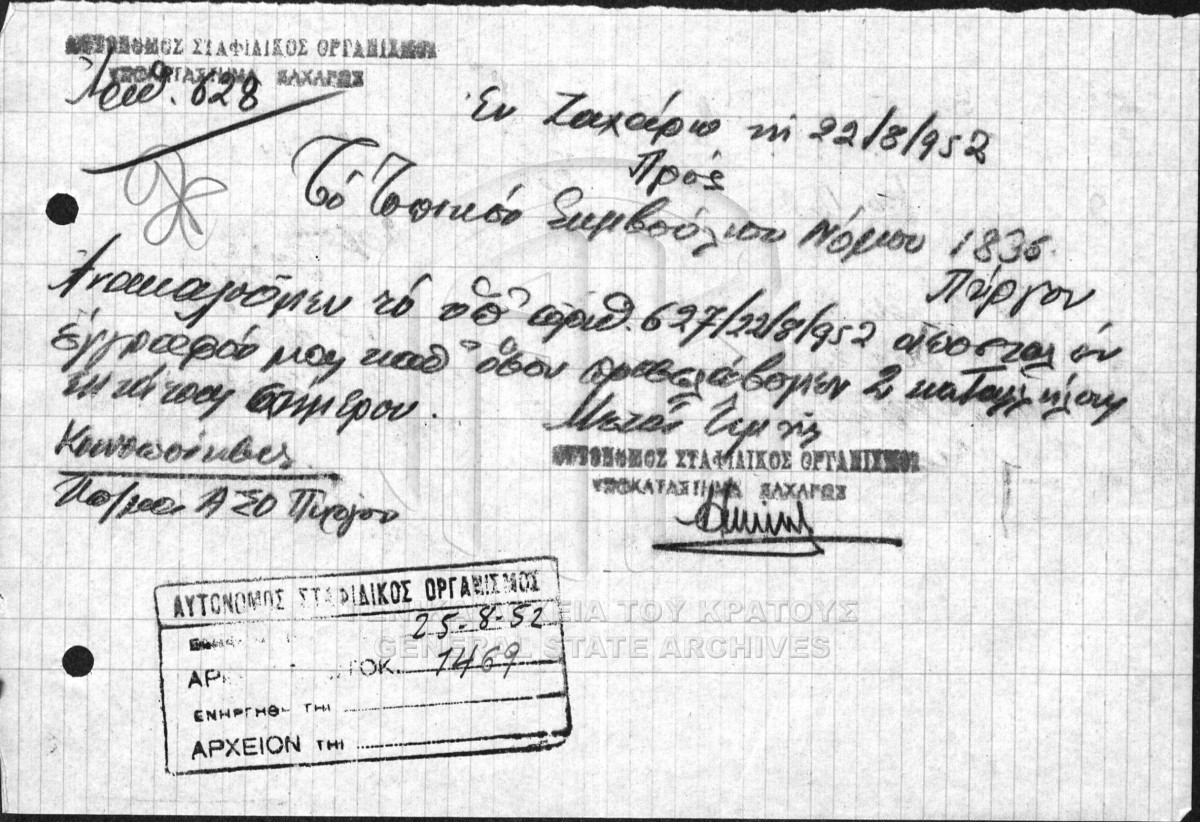 ΑΥΤΟΝΟΜΟΣ ΣΤΑΦΙΔΙΚΟΣ ΟΡΓΑΝΙΣΜΟΣ
ΥΠΟΚΑΤΑΣΤΗΜΑ ΖΑΧΑΡΩΣ
Αριθ. 628
Εν Ζαχάρω τη 22/8/952
Πρός
Τό Τοπικόν Συμβούλιον Νόμου 1836
Πύργον
Ανακαλούμεν τό υπ' αριθ. 627/22/8/952 αποσταλέν
έγγραφόν μας καθ' όσον προσελάβομεν 2 καταλλήλους
εργάτας σήμερον.
Μετά Τιμής
ΑΥΤΟΝΟΜΟΣ ΣΤΑΦΙΔΙΚΟΣ ΟΡΓΑΝΙΣΜΟΣ
ΥΠΟΚΑΤΑΣΤΗΜΑ ΖΑΧΑΡΩΣ
Κοινοποίησις
ΑΣΟ Πύργου
ΑΥΤΟΝΟΜΟΣ ΣΤΑΦΙΔΙΚΟΣ ΟΡΓΑΝΙΣΜΟΣ
25-8-52
1469
ΕΝΗΡΓΗΘΗ ΤΗΙ
ΑΡΧΕΙΟΝ ΤΗΙ
ΤΟΥ ΚΡΑΤΟΥΣ
GENERAL STATE ARCHIVES